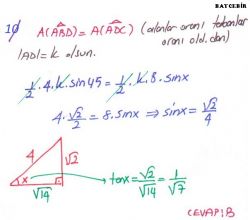 BAYCEBİR
10) A(ABD) = A(ADC) (alanlar oranı tabanlar
oranı old.dan)
|AD|=k olsun.
1/2 . 4 . k . sin45 = 1/2 . k . 8 . sinx
4 . √2/2 = 8 . sinx ⇒ sinx = √2/4
4
√2
x
√14
tanx = √2/√14 = 1/√7
CEVAP: B